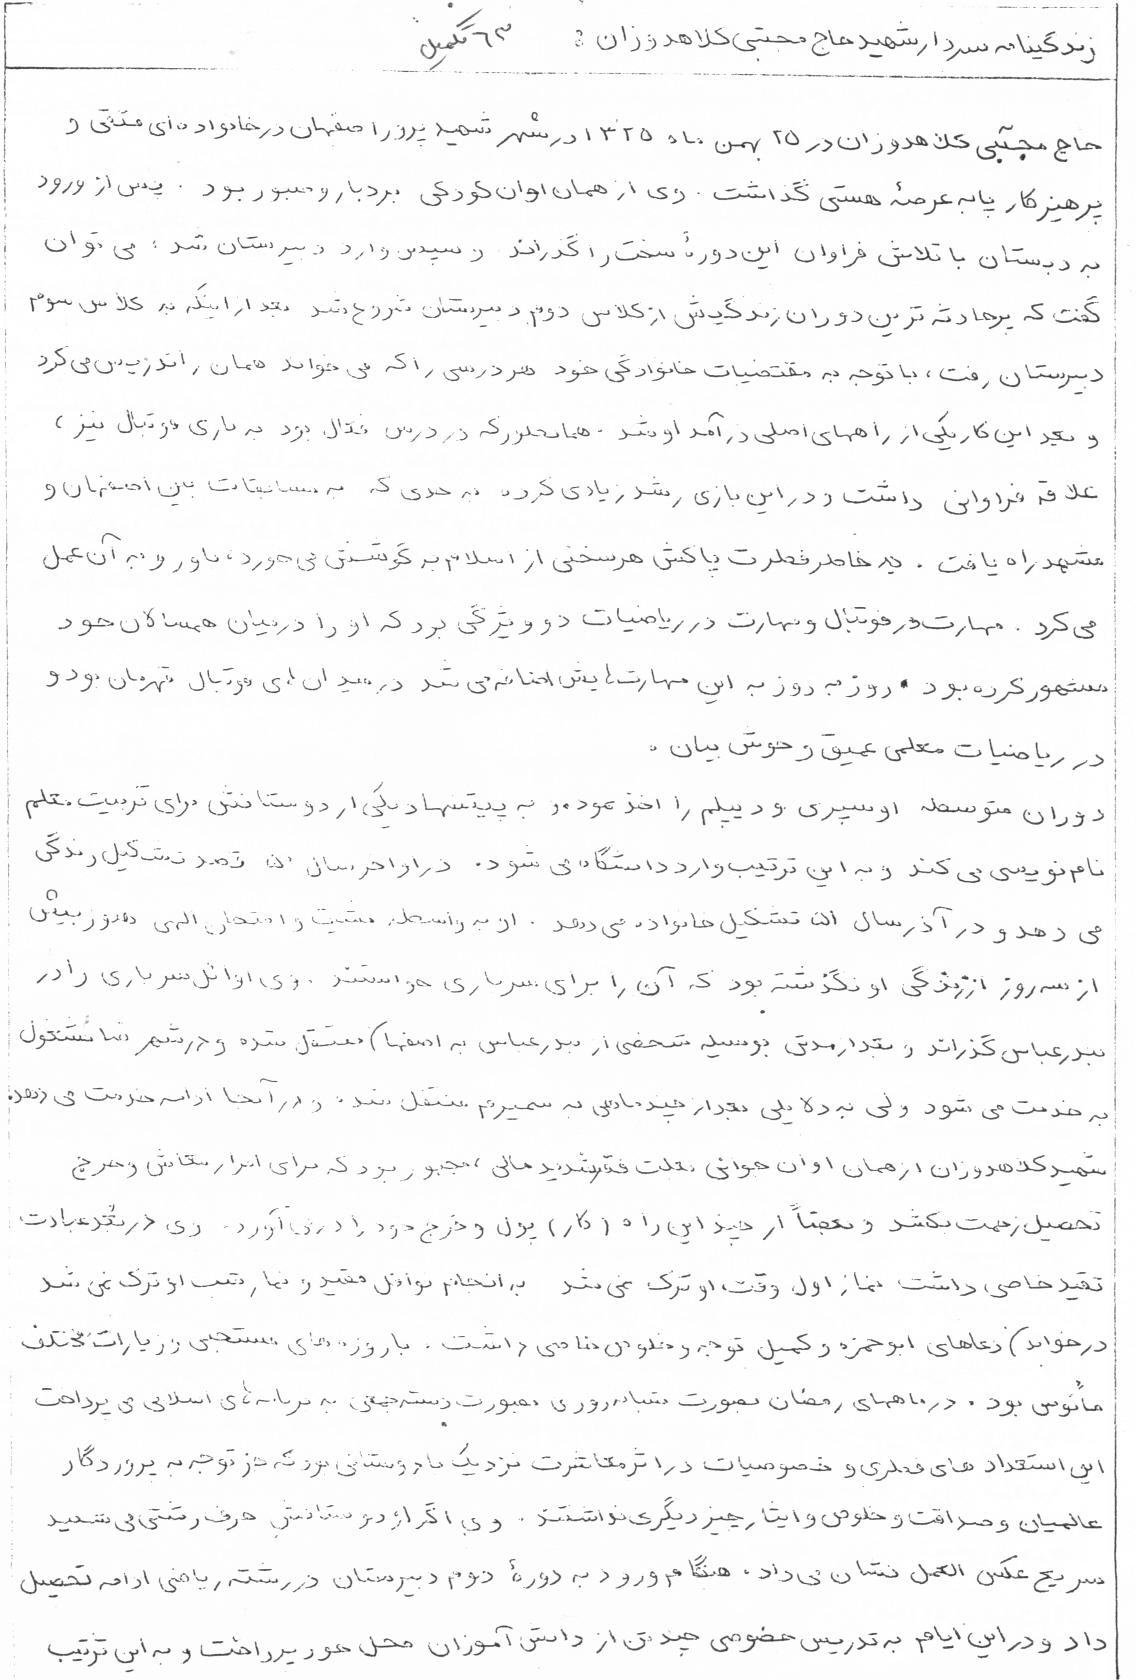 زندگینامه سردار شهید حاج مجتبی کلاهدوزان : ۶۳ تکمیل
حاج مجتبی کلاهدوزان در ۲۵ بهمن ماه ۱۳۲۵ در شهر شهید پرور اصفهان در خانواده ای متقی و
پرهیزکار پا به عرصهٔ هستی گذاشت . وی از همان اوان کودکی بردبار و صبور بود . پس از ورود
به دبستان با تلاش فراوان این دورهٔ سخت را گذراند و سپس وارد دبیرستان شد ؛ می توان
گفت که پرحادثه ترین دوران زندگیش از کلاس دوم دبیرستان شروع شد بعد از اینکه به کلاس سوم
دبیرستان رفت ، با توجه به مقتضیات خانوادگی خود هر درسی را که می خواند همان را تدریس می کرد
و بعد این کار یکی از راههای اصلی درآمد او شد . همانطور که در درس فعال بود به بازی فوتبال نیز ،
علاقه فراوانی داشت و در این بازی رشد زیادی کرده به حدی که به مسابقات بین اصفهان و
مشهد راه یافت . به خاطر فطرت پاکش هر سخنی از اسلام بر گوشش می خورد ، باور و به آن عمل
می کرد . مهارت در فوتبال و مهارت در ریاضیات دو ویژگی بود که او را در میان همسالان خود
مشهور کرده بود . روز به روز به این مهارت هایش اضافه می شد در میدان های فوتبال قهرمان بود و
در ریاضیات معلمی عمیق و خوش بیان .
دوران متوسطه او سپری و دیپلم را اخذ نموده و به پیشنهاد یکی از دوستانش برای تربیت معلم
نام نویسی می کند و به این ترتیب وارد دانشگاه می شود . در اواخر سال ۵۱ قصد تشکیل زندگی
می دهد و در آذر سال ۵۱ تشکیل خانواده می دهد . او به واسطه مشیت و امتحان الهی هنوز بیش
از سه روز از زندگی او نگذشته بود که آن را برای سربازی خواستند . وی اوائل سربازی را در
بندرعباس گذراند و بعد از مدتی بوسیله شخصی از بندرعباس به اصفهان منتقل شده و در شهر رضا مشغول
به خدمت می شود ولی به دلایلی بعد از چند ماهی به سمیرم منتقل شده و در آنجا ادامه خدمت می دهد .
شهید کلاهدوزان از همان اوان جوانی بعلت فقر شدید مالی ، مجبور بود که برای امرار معاش و خرج
تحصیل زحمت بکشد و بعضاً از چند این راه (کار) پول و خرج خود را در می آورد . وی در بُعد عبادت
تقید خاصی داشت نماز اول وقت او ترک نمی شد به انجام نوافل مقید و نماز شب او ترک نمی شد
در خواندن دعاهای ابوحمزه و کمیل توجه و خلوص خاصی داشت . با روزه های مستحبی و زیارات مختلف
مأنوس بود . در ماههای رمضان بصورت شبانه روزی بصورت دسته جمعی به برنامه های اسلامی می پرداخت
این استعداد های فطری و خصوصیات در اثر معاشرت نزدیک با دوستانی بود که جز توجه به پروردگار
عالمیان و صداقت و خلوص و ایثار چیز دیگری نداشتند . وی اگر از دوستانش حرف زشتی می شنید
سریع عکس العمل نشان می داد . هنگام ورود به دورهٔ دوم دبیرستان در رشته ریاضی ادامه تحصیل
داد و در این ایام به تدریس خصوصی چند تن از دانش آموزان محل خود پرداخت و به این ترتیب